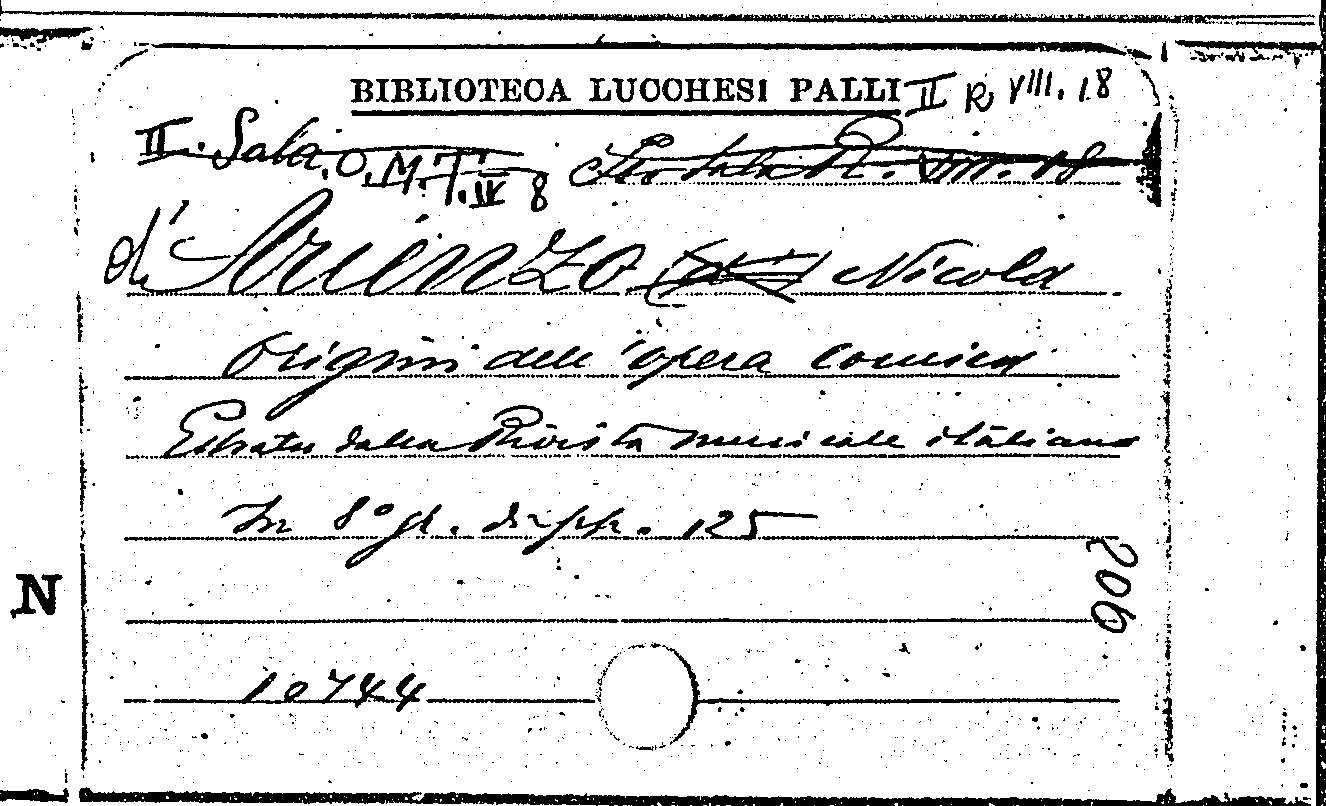 BIBLIOTECA LUCCHESI PALLI II R. VIII. 18
II. Sala. O.M.T. IV 8 Sala R. VIII. 18
d'Arienzo Nicola
Origini dell'opera comica
Estratto dalla Rivista musicale italiana
In 8° gr. di pp. 125
206
N
10744